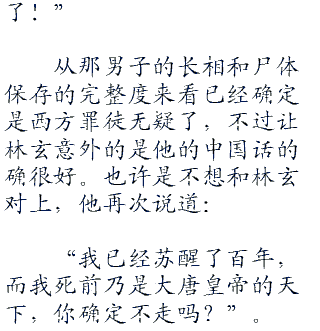 了！”
从那男子的长相和尸体
保存的完整度来看已经确定
是西方罪徒无疑了，不过让
林玄意外的是他的中国话的
确很好。也许是不想和林玄
对上，他再次说道：
“我已经苏醒了百年，
而我死前乃是大唐皇帝的天
下，你确定不走吗？”。